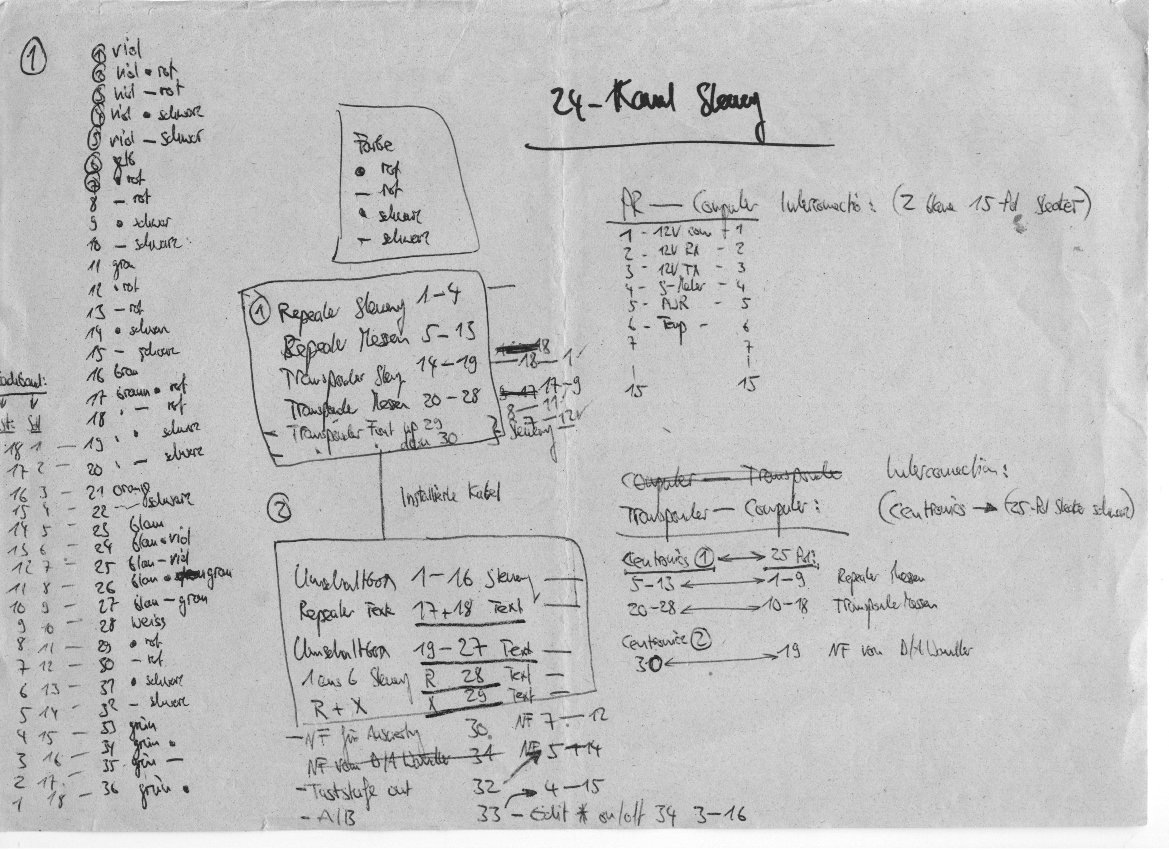 ①
① viol
② viol • rot
③ viol — rot
④ viol • schwarz
⑤ viol — schwar
⑥ gelb
⑦ • rot
8 — rot
9 • schwar
10 — schwarz
11 grau
12 • rot
13 — rot
14 • schwarz
15 — schwarz
16 braun
17 braun • rot
18 " — rot
19 " • schwarz
20 " — schwarz
21 orange
22 schwarz
23 blau
24 blau • viol
25 blau — viol
26 blau • grau
27 blau — grau
28 weiss
29 • rot
30 — rot
31 • schwarz
32 — schwarz
33 grün
34 grün •
35 grün —
36 grün •
18 1 —
17 2 —
16 3 —
15 4 —
14 5 —
13 6 —
12 7 —
11 8 —
10 9 —
9 10 —
8 11 —
7 12 —
6 13 —
5 14 —
4 15 —
3 16 —
2 17 —
1 18 —
Farbe
• rot
— rot
• schwarz
— schwarz
24-Kanal Steuerg
① Repeater Steuerg 1–4
Repeater Messen 5–13
Transponder Steug 14–19
Transponder Messen 20–28
Transponder Font up 29
down 30 } Steuerg
18
18 — 1
17–9
8 — 11
7 — 12
Installierte Kabel
②
Umschaltbox 1–16 Steuerg
Repeater Text 17+18 Text
Umschaltbox 19–27 Text
1 aus 6 Steuerg R 28 Text
R + X X 29 Text
— NF für Auswertg 30 NF 7 — 12
NF vom D/A Wandler 31 NF 5 — 14
— Taststufe out 32 4 — 15
— A/B 33 — Edit * on/off 34 3–16
AR — Computer Interconnection: (2 15-Pol Stecker)
1 - 12V com - 1
2 - 12V RX - 2
3 - 12V TX - 3
4 - S-Meter - 4
5 - PWR - 5
6 - Temp - 6
7 7
15 15
Computer — Transponder Interconnection:
Transponder — Computer: (Centronics → 25-Pol Stecker schwarz)
Centronics ① ↔ 25 Pol:
5–13 ↔ 1–9 Repeater Messen
20–28 ↔ 10–18 Transponder Messen
Centronics ②
30 ↔ 19 NF vom D/A Wandler